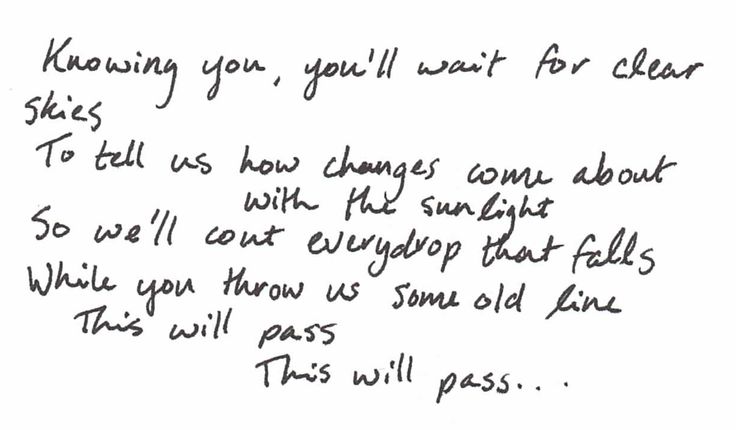 Knowing you, you'll wait for clear
skies
To tell us how changes come about
with the sunlight
So we'll cout everydrop that falls
While you throw us some old line
This will pass
This will pass...